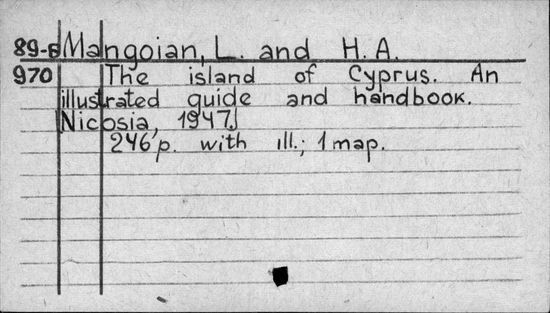 89-Б Mangoian, L. and H.A.
970 The island of Cyprus. An
illustrated guide and handbook.
Nicosia, 1947.
246 p. with ill.; 1 map.